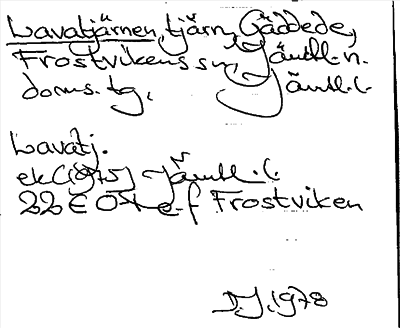 Lavatjärnen, tjärn, Gäddede,
Frostvikens sn, Jämtl. n.
doms. tg, Jämtl. l.
Lavatj.
ek (1975) Jämtl. l.
22E 0 e-f Frostviken
D.J. 1978